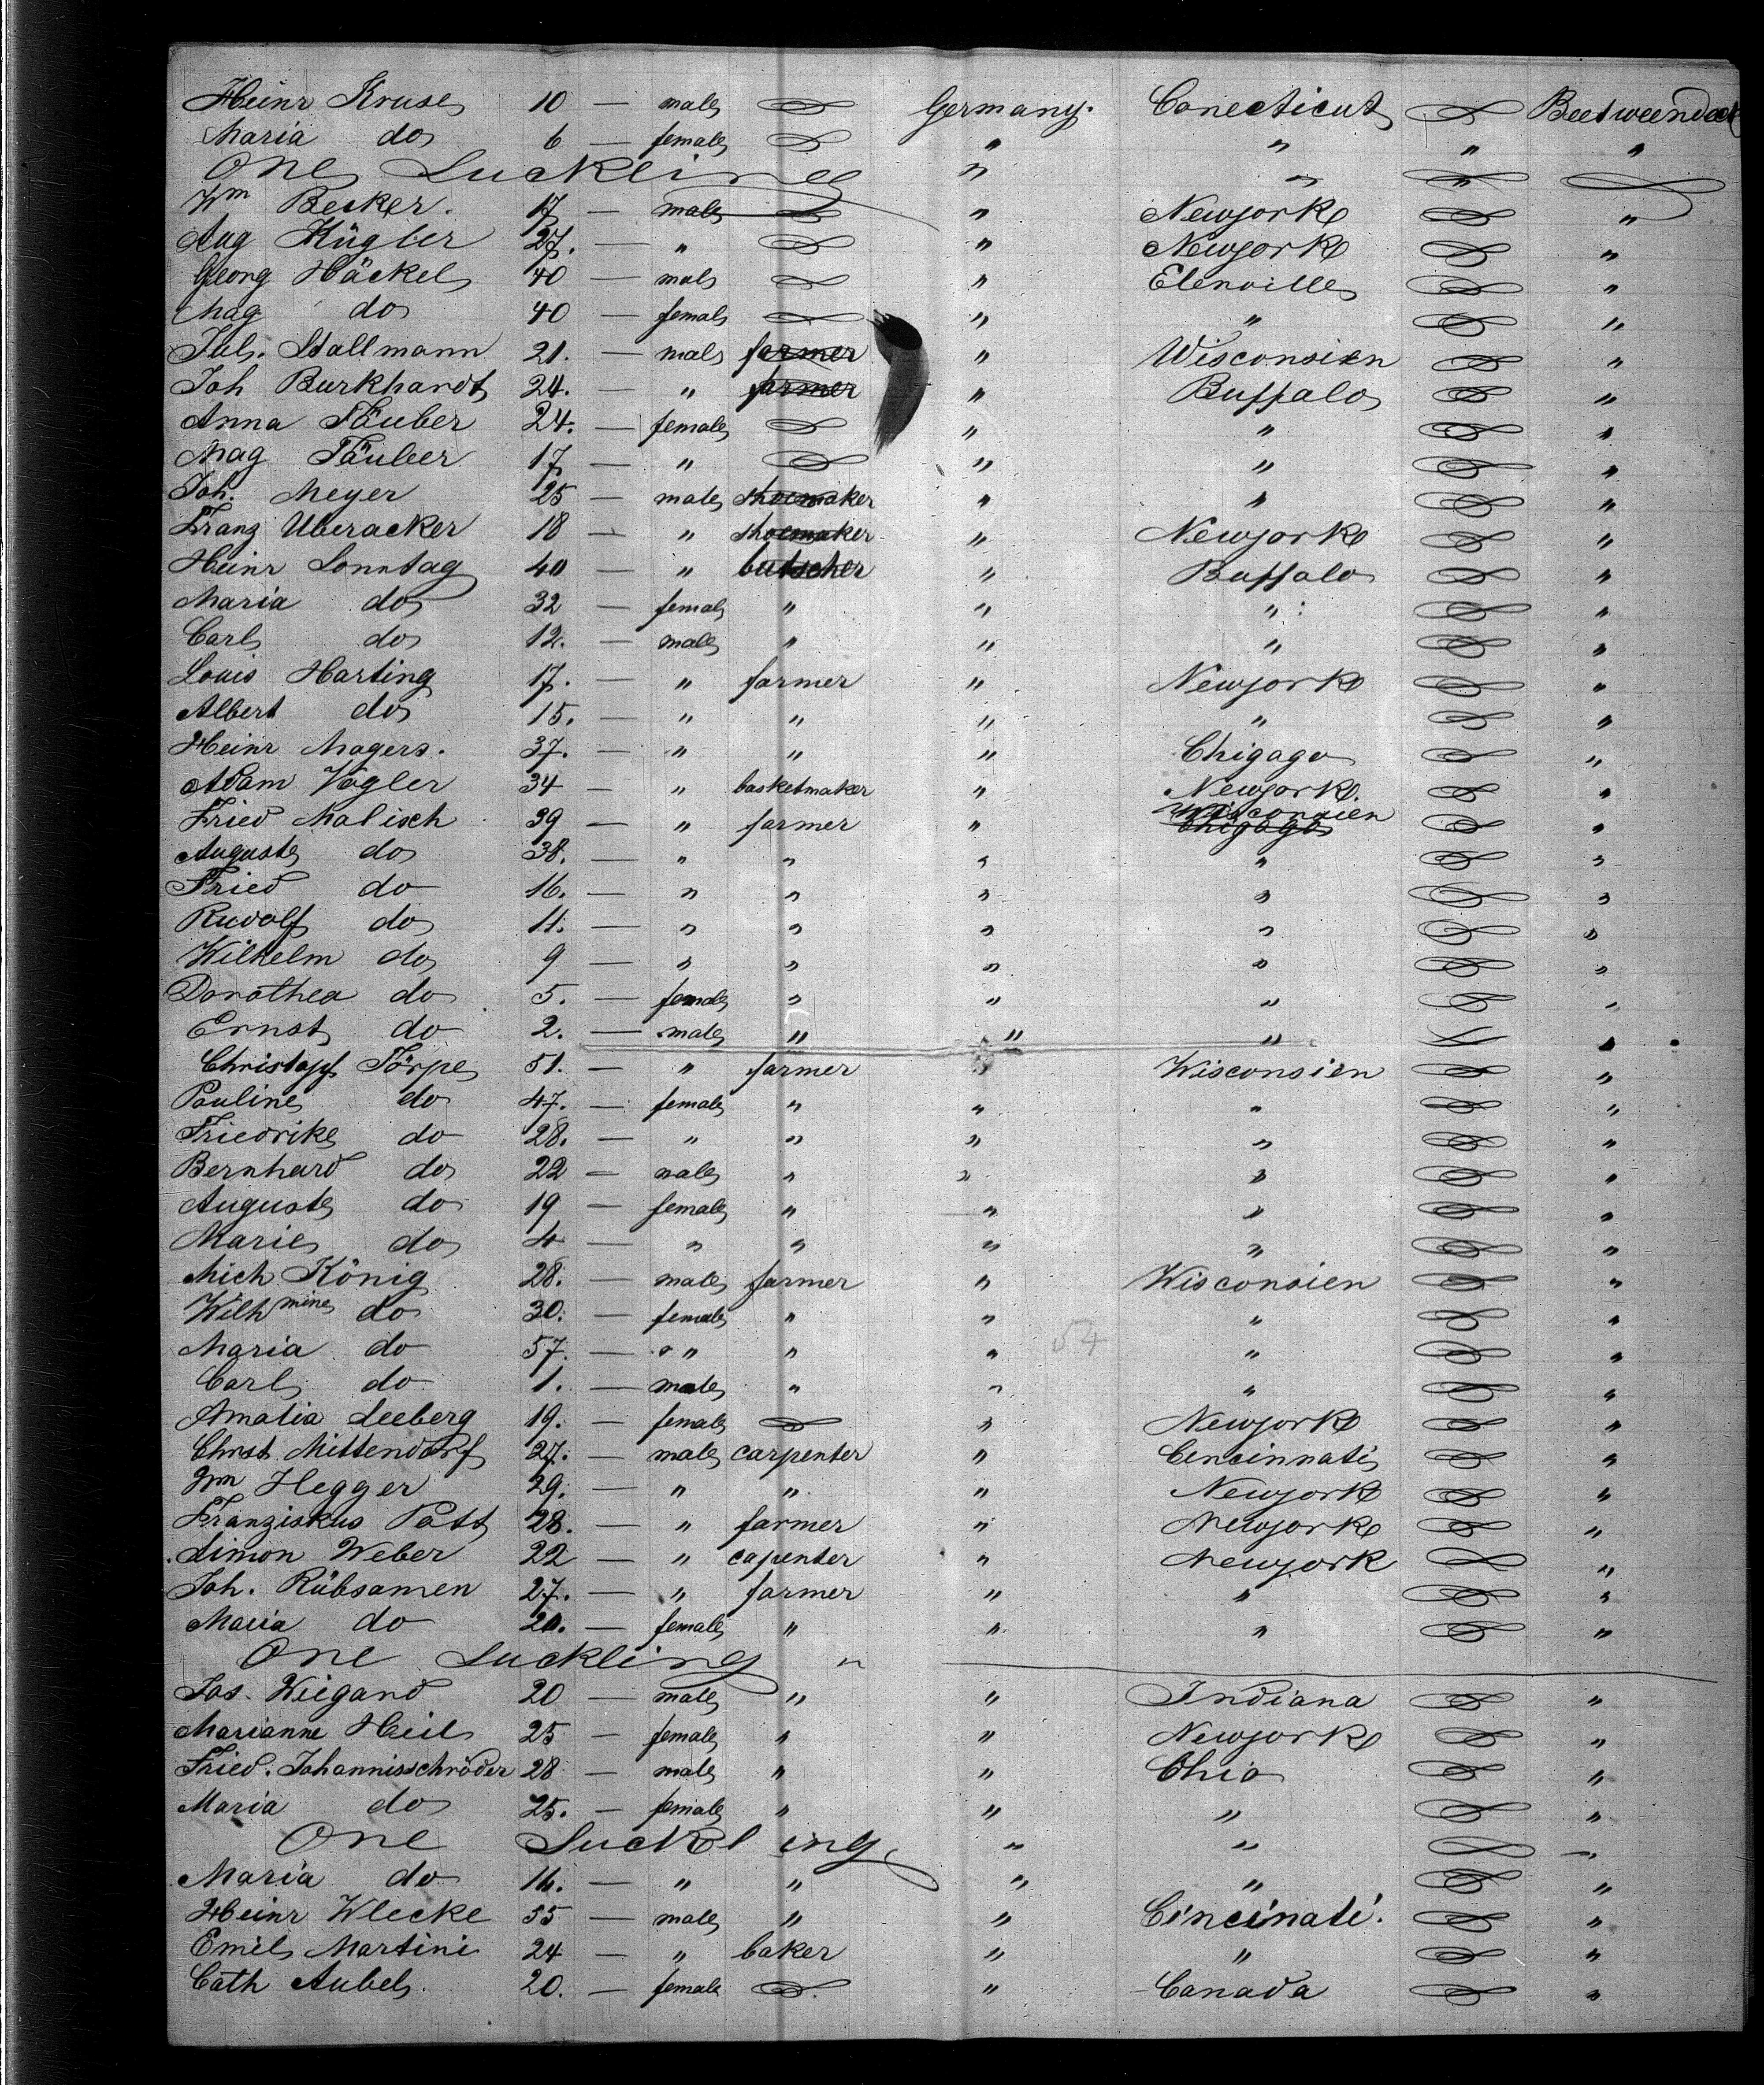 Heinr Kruse 10 — male Germany. Conecticut Beetweendeck
Maria do 6 — female " " " "
One Suckling " " "
Wm Becker. 17 — male " Newjork "
Aug Kügler 27. — " " Newjork "
Georg Häckel 40 — male " Elenville "
Mag do 40 — female " " "
Jul. Stallmann 21. — male farmer " Wisconsien "
Joh Burkhardt 24. — " farmer " Buffalo "
Anna Täuber 24. — female " " "
Mag Täuber 17 — " " " "
Joh. Meyer 25 — male shoemaker " " "
Franz Uberacker 18 — " shoemaker " Newjork "
Heinr Sonntag 40 — " butscher " Buffalo "
Maria do 32 — female " " " "
Carl do 12. — male " " " "
Louis Harting 17. — " farmer " Newjork "
Albert do 15. — " " " " "
Heinr Magers. 37. — " " " Chigago "
Adam Vogler 34 — " basketmaker " Newjork. "
Fried Malisch 39 — " farmer " Wisconsien Chigago "
Auguste do 38. — " " " " "
Fried do 16. — " " " " "
Rudolf do 11. — " " " " "
Wilhelm do 9 — " " " " "
Dorothea do 5. — female " " " "
Ernst do 2. — male " " " "
Christoph Törpe 51. — " farmer " Wisconsien "
Pauline do 47. — female " " " "
Friedrike do 28. — " " " " "
Bernhard do 22 — male " " " "
Auguste do 19 — female " " " "
Marie do 4 — " " " " "
Mich König 28. — male farmer " Wisconsien "
Wilhmine do 30. — female " " " "
Maria do 57. — " " " " "
54
Carl do 1. — male " " " "
Amalia Leeberg 19. — female " Newjork "
Christ. Mittendorf 27. — male carpenter " Cencinnati "
Wm Hegger 29. — " " " Newjork "
Franziskus Patt 28. — " farmer " Newjork "
Simon Weber 22 — " capenter " Newjork "
Joh. Rübsamen 27. — " farmer " " "
Maria do 20. — female " " " "
One Suckling "
Jos. Wiegand 20 — male " " Indiana "
Marianne Heil 25 — female " " Newjork "
Fried. Johannisschröder 28 — male " " Ohio "
Maria do 25. — female " " " "
One Suckling " " "
Maria do 14. — " " " " "
Heinr Wlecke 55 — male " " Cincinati. "
Emil Martini 24 — " baker " " "
Cath Aubel. 20. — female " Canada "